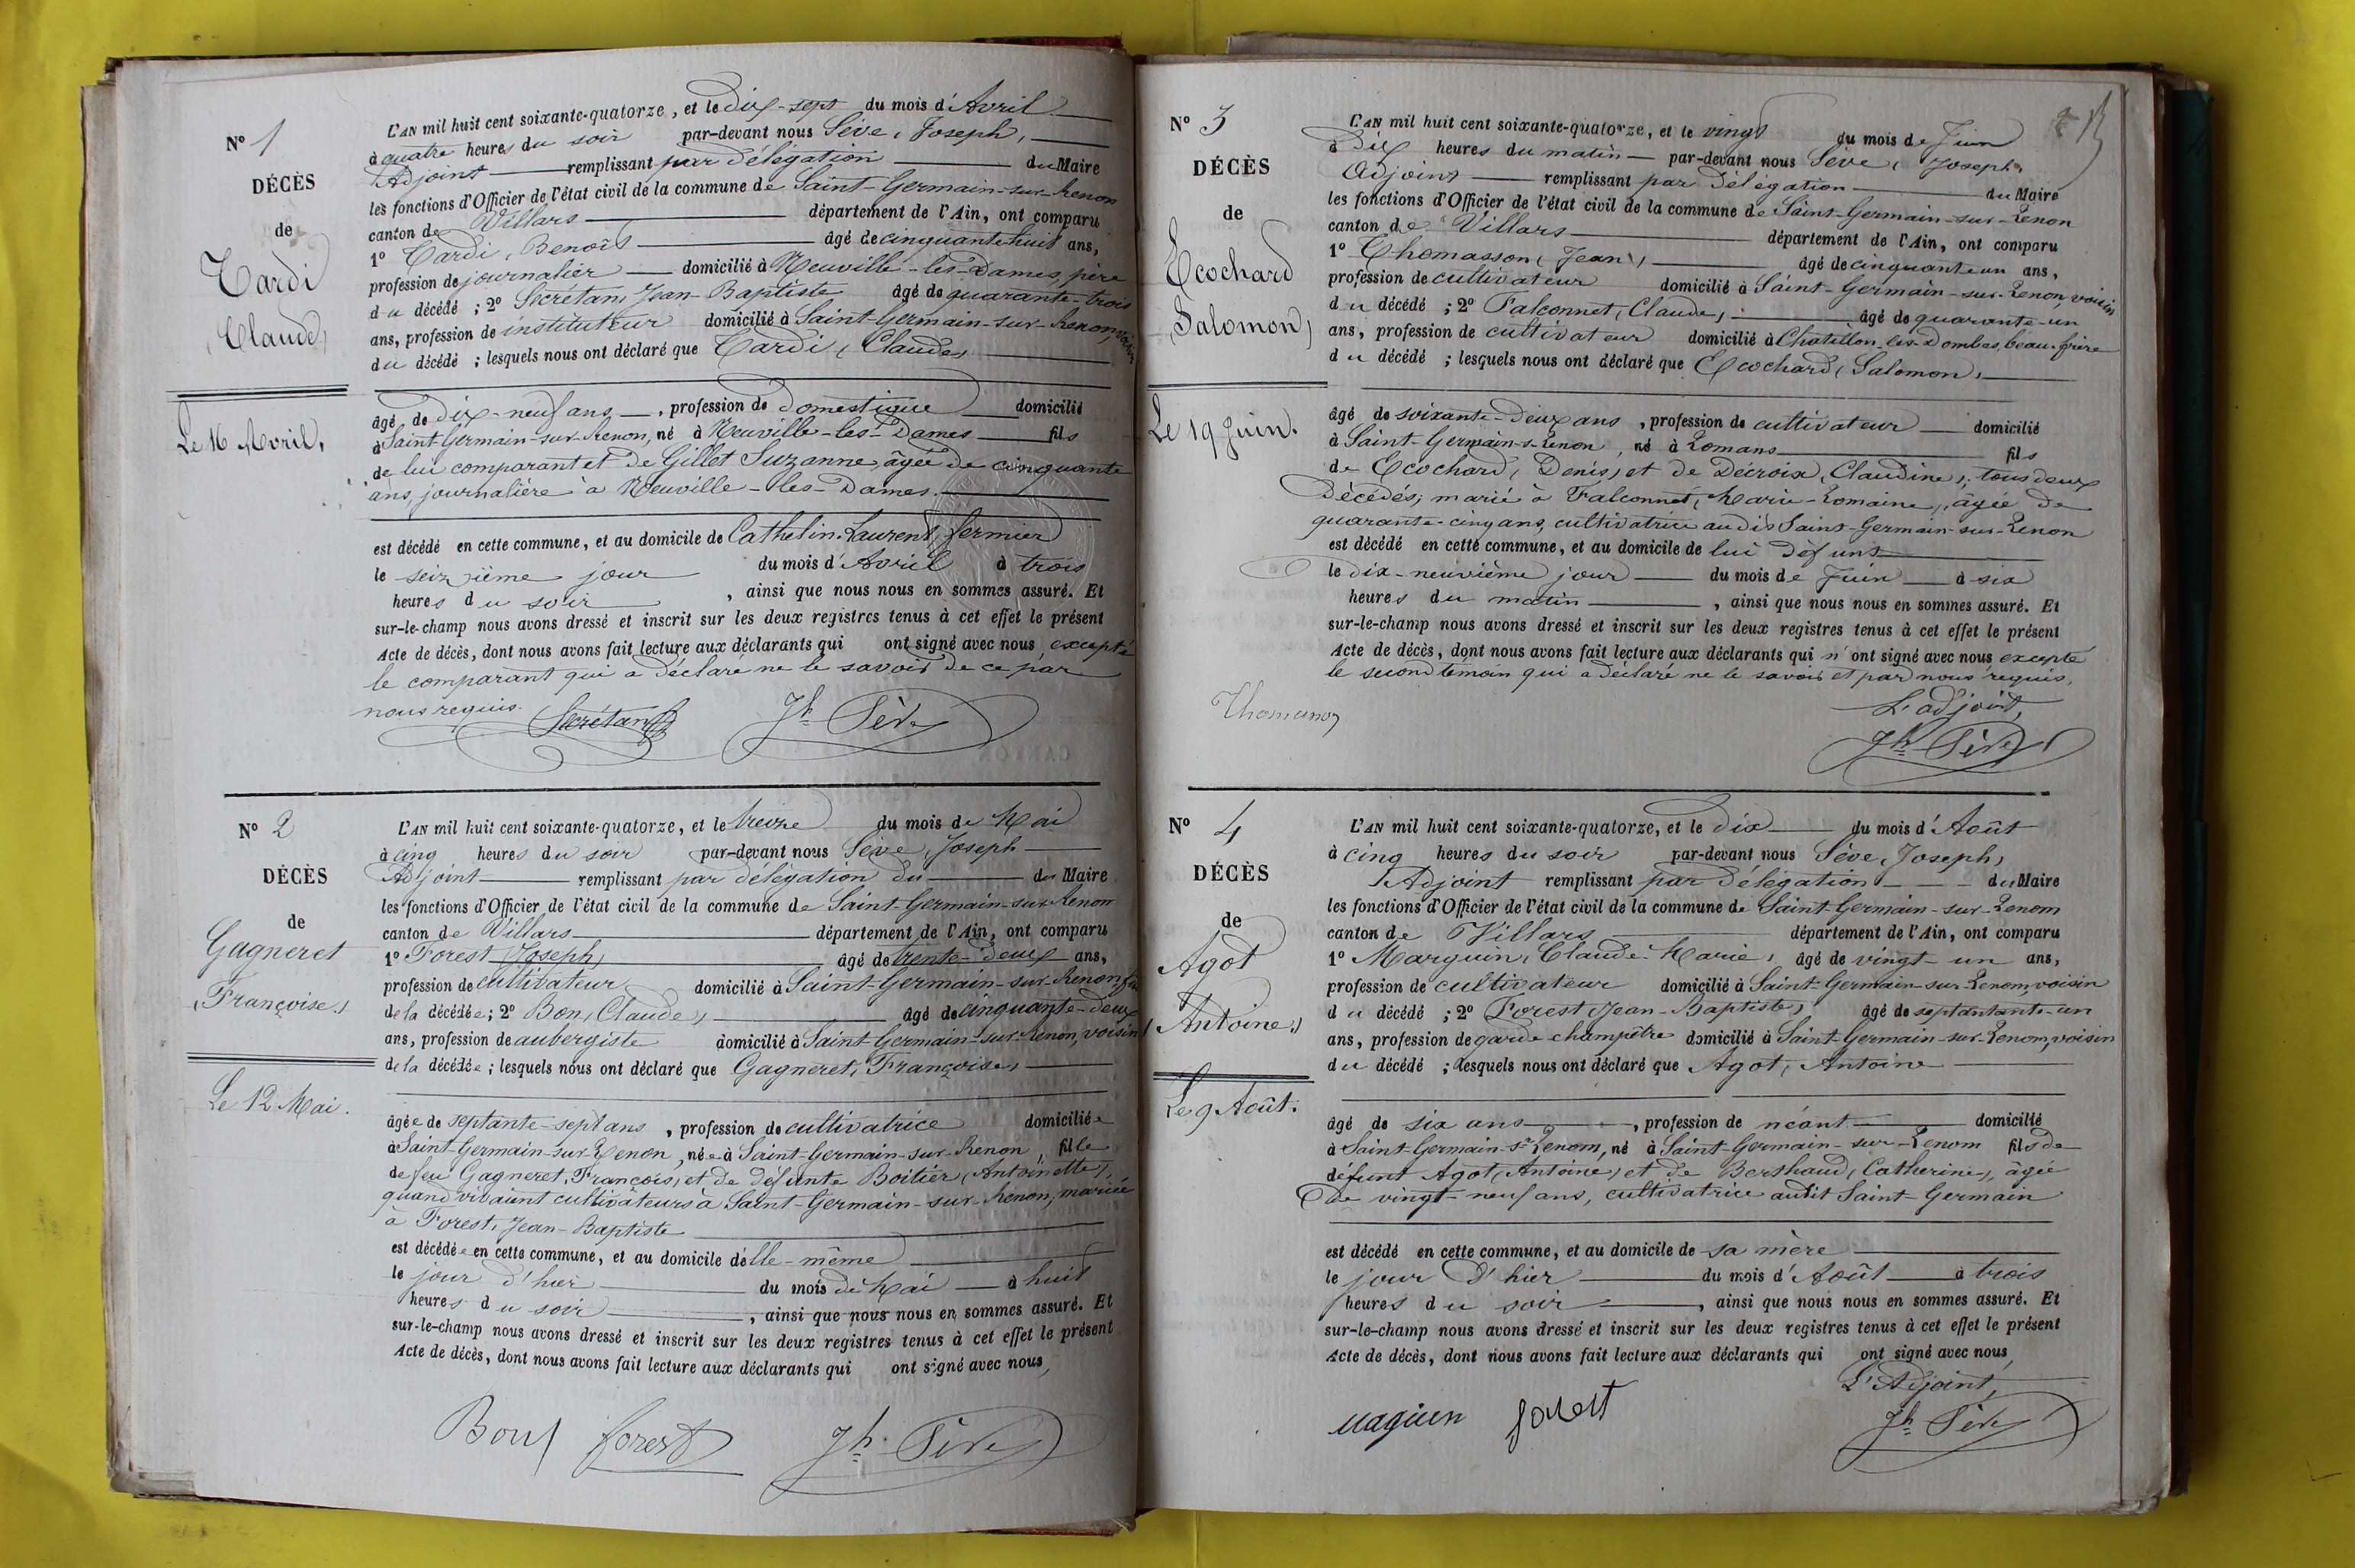 Nº 1
DÉCÈS
de
Tardi
(Claude)
Le 16 Avril.
L'AN mil huit cent soixante-quatorze, et le dix-sept du mois d'Avril
à quatre heures du soir par-devant nous Sève, Joseph,
Adjoint remplissant par délégation du Maire
les fonctions d'Officier de l'état civil de la commune de Saint-Germain-sur-Renon
canton de Villars département de l'Ain, ont comparu
1º Tardi, Benoît âgé de cinquante huit ans,
profession de journalier domicilié à Neuville-les-Dames, père
du décédé ; 2º Secrétan, Jean-Baptiste âgé de quarante-trois
ans, profession de instituteur domicilié à Saint-Germain-sur-Renon, voisin
du décédé ; lesquels nous ont déclaré que Tardi (Claude)
âgé de dix-neuf ans, profession de domestique domicilié
à Saint-Germain-sur-Renon, né à Neuville-les-Dames fils
de lui comparant et de Gillet Suzanne, âgée de cinquante
ans, journalière à Neuville-les-Dames.
est décédé en cette commune, et au domicile de Cathelin Laurent, fermier
le seizième jour du mois d'Avril à trois
heures du soir, ainsi que nous nous en sommes assuré. Et
sur-le-champ nous avons dressé et inscrit sur les deux registres tenus à cet effet le présent
Acte de décès, dont nous avons fait lecture aux déclarants qui ont signé avec nous excepté
le comparant qui a déclaré ne le savoir de ce par
nous requis. Secrétan Jh Sève
Nº 2
DÉCÈS
de
Gagneret
(Françoise)
Le 12 Mai.
L'AN mil huit cent soixante-quatorze, et le treize du mois de Mai
à cinq heures du soir par-devant nous Sève, Joseph
Adjoint remplissant par délégation du du Maire
les fonctions d'Officier de l'état civil de la commune de Saint-Germain-sur-Renon
canton de Villars département de l'Ain, ont comparu
1º Forest (Joseph) âgé de trente-deux ans,
profession de cultivateur domicilié à Saint-Germain-sur-Renon
de la décédée ; 2º Bon (Claude), âgé de cinquante-deux
ans, profession de aubergiste domicilié à Saint-Germain-sur-Renon, voisin
de la décédée ; lesquels nous ont déclaré que Gagneret, Françoise,
âgée de septante-sept ans, profession de cultivatrice domiciliée
à Saint-Germain-sur-Renon, née à Saint-Germain-sur-Renon, fille
de feu Gagneret, François, et de défunte Boitier (Antoinette),
quand vivaient cultivateurs à Saint-Germain-sur-Renon, mariée
à Forest, Jean-Baptiste
est décédée en cette commune, et au domicile d'elle-même
le jour d'hier du mois de Mai à huit
heures du soir, ainsi que nous nous en sommes assuré. Et
sur-le-champ nous avons dressé et inscrit sur les deux registres tenus à cet effet le présent
Acte de décès, dont nous avons fait lecture aux déclarants qui ont signé avec nous,
Bon forest Jh Sève
Nº 3
DÉCÈS
de
Ecochard
(Salomon)
Le 19 Juin.
L'AN mil huit cent soixante-quatorze, et le vingt du mois de Juin
à dix heures du matin par-devant nous Sève, Joseph,
Adjoint remplissant par délégation du Maire
les fonctions d'Officier de l'état civil de la commune de Saint-Germain-sur-Renon
canton de Villars département de l'Ain, ont comparu
1º Thomasson (Jean), âgé de cinquante un ans,
profession de cultivateur domicilié à Saint-Germain-sur-Renon, voisin
du décédé ; 2º Falconnet, Claude, âgé de quarante-un
ans, profession de cultivateur domicilié à Chatillon-les-Dombes, beau-frère
du décédé ; lesquels nous ont déclaré que Ecochard (Salomon),
âgé de soixante-deux ans, profession de cultivateur domicilié
à Saint-Germain-s-Renon, né à Romans fils
de Ecochard (Denis) et de Décroix (Claudine), tous deux
décédés; marié à Falconnet, Marie-Romaine, âgée de
quarante-cinq ans, cultivatrice au dit Saint-Germain-sur-Renon
est décédé en cette commune, et au domicile de lui défunt
le dix-neuvième jour du mois de Juin à six
heures du matin, ainsi que nous nous en sommes assuré. Et
sur-le-champ nous avons dressé et inscrit sur les deux registres tenus à cet effet le présent
Acte de décès, dont nous avons fait lecture aux déclarants qui n'ont signé avec nous excepté
le second témoin qui a déclaré ne le savoir et par nous requis.
L'adjoint,
Jh Sève
Nº 4
DÉCÈS
de
Agot
(Antoine)
Le 9 Août.
L'AN mil huit cent soixante-quatorze, et le dix du mois d'Août
à cinq heures du soir par-devant nous Sève, Joseph,
Adjoint remplissant par délégation du Maire
les fonctions d'Officier de l'état civil de la commune de Saint-Germain-sur-Renom
canton de Villars département de l'Ain, ont comparu
1º Marguin, Claude-Marie, âgé de vingt-un ans,
profession de cultivateur domicilié à Saint-Germain-sur-Renom, voisin
du décédé ; 2º Forest (Jean-Baptiste) âgé de septantante-un
ans, profession de garde champêtre domicilié à Saint-Germain-sur-Renom, voisin
du décédé ; lesquels nous ont déclaré que Agot, Antoine
âgé de six ans, profession de néant domicilié
à Saint-Germain-sr Renom, né à Saint-Germain-sur-Renom fils de
défunt Agot (Antoine) et de Berthaud (Catherine), âgée
de vingt-neuf ans, cultivatrice audit Saint-Germain
est décédé en cette commune, et au domicile de sa mère
le jour d'hier du mois d'Août à trois
heures du soir, ainsi que nous nous en sommes assuré. Et
sur-le-champ nous avons dressé et inscrit sur les deux registres tenus à cet effet le présent
Acte de décès, dont nous avons fait lecture aux déclarants qui ont signé avec nous,
L'Adjoint,
forest Jh Sève